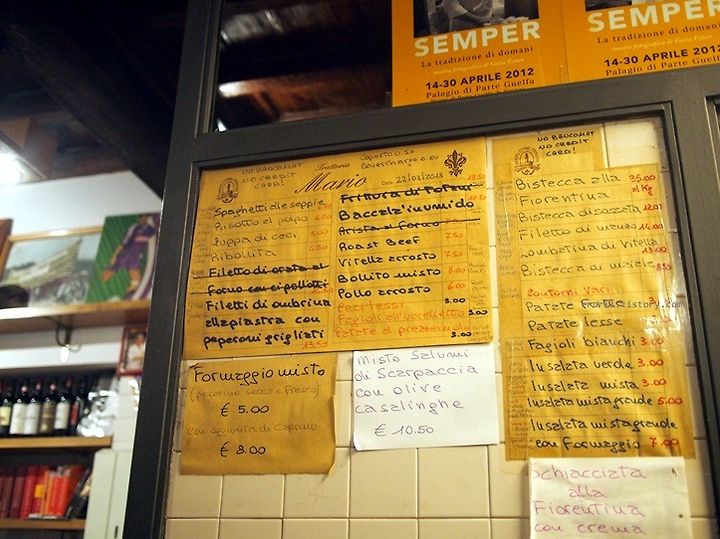 SEMPER
La tradizione di domani
mostra fotografica di Galia Eytan
14-30 APRILE 2012
Palagio di Parte Guelfa
SEMPER
La tradizione di domani
14-30 APRILE 2012
Palagio di Parte Guelfa
NO BANCOMAT
NO CREDIT
CARD!
Trattoria
Mario
Coperto 0.50
Covercharge 0.50
Data 22/02/2013
Spaghetti alle seppie
Risotto al polpo
Zuppa di ceci
Ribollita
Filetto di orata al
forno con cipollotti
Filetti di ombrina
alla piastra con
peperoni grigliati 13.50
Frittura di
Baccala' in umido
Arista al forno
Roast Beef 7.50
Vitella arrosto
Bollito misto 8.00
Pollo arrosto 6.00
Ceci lessi 3.00
Fagioli all'uccelletto 3.00
Patate al prezzemolo 3.00
NO BANCOMAT
NO CREDIT
CARD!
Bistecca alla 35.00
Fiorentina al Kg
Bistecca disossata
Filetto di manzo 14.00
Lombatina di Vitella 13.00
Bistecca di maiale 8.50
Contorni Varii
Patate
Patate lesse
Fagioli bianchi 3.00
Insalata verde 3.00
Insalata mista 3.00
Insalata mista grande 5.00
Insalata mista grande
con Formaggio 7.00
Formaggio misto
(pecorino secco e fresco)
€ 5.00
con aggiunta di Caprino
€ 8.00
Misto Salumi
di Scarpaccia
con olive
casalinghe
€ 10.50
Schiacciata
alla
Fiorentina
con crema